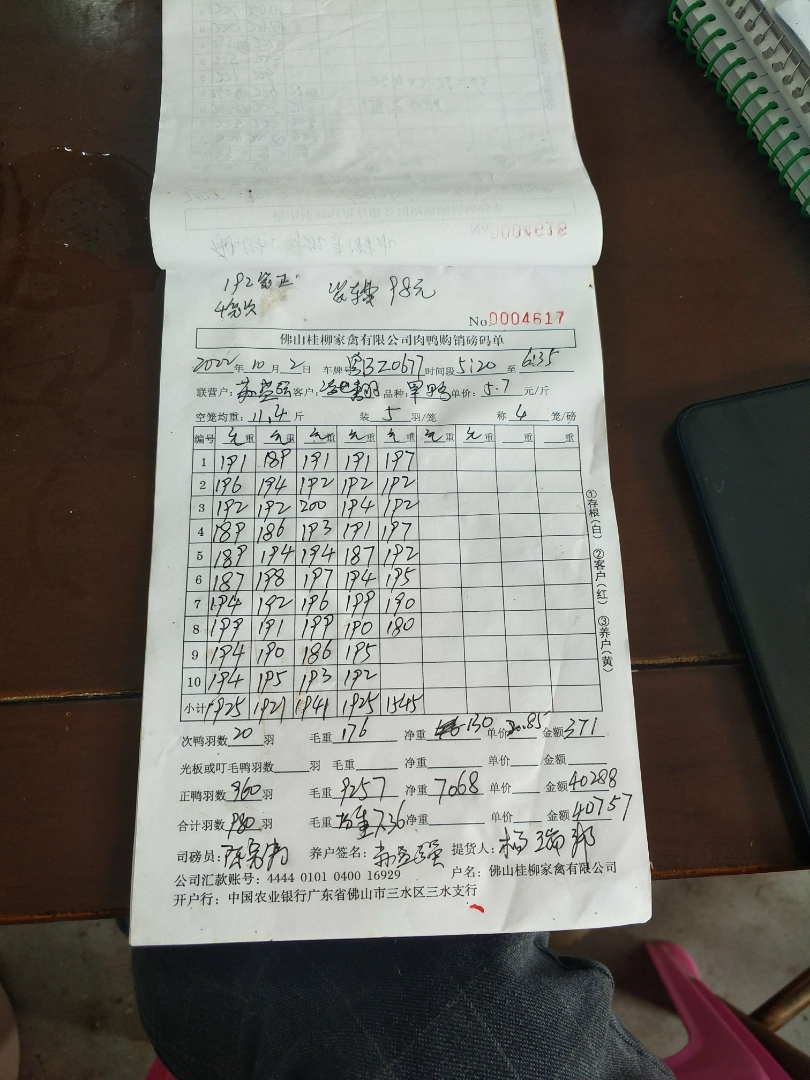 192笼正
4笼次
装车费 98元
No.0004617
佛山桂柳家禽有限公司肉鸭购销磅码单
2022年10月2日 车牌号粤BZ0677时间段5:20至6:35
联营户: 客户: 品种: 单价:5.7元/斤
空笼均重:11.4斤 装5羽/笼 称4笼/磅
编号 毛重 毛重 毛重 毛重 毛重 毛重 毛重 重 重
1 191 189 191 191 197
2 196 194 192 192 192
3 192 192 200 194 192
4 189 186 193 191 197
5 189 194 194 187 192
6 187 198 197 194 195
7 194 192 196 199 190
8 199 191 199 190 180
9 194 190 186 195
10 194 195 193 192
小计 1925 1921 1941 1925 1545
次鸭羽数20羽 毛重176 净重130 单价2.85 金额371
光板或叮毛鸭羽数 羽 毛重 净重 单价 金额
正鸭羽数960羽 毛重9257 净重7068 单价 金额40288
合计羽数980羽 毛重 7.36净重 单价 金额40757
司磅员: 养户签名: 提货人:杨
公司汇款账号:4444 0101 0400 16929 户名:佛山桂柳家禽有限公司
开户行:中国农业银行广东省佛山市三水区三水支行
①存根(白) ②客户(红) ③养户(黄)